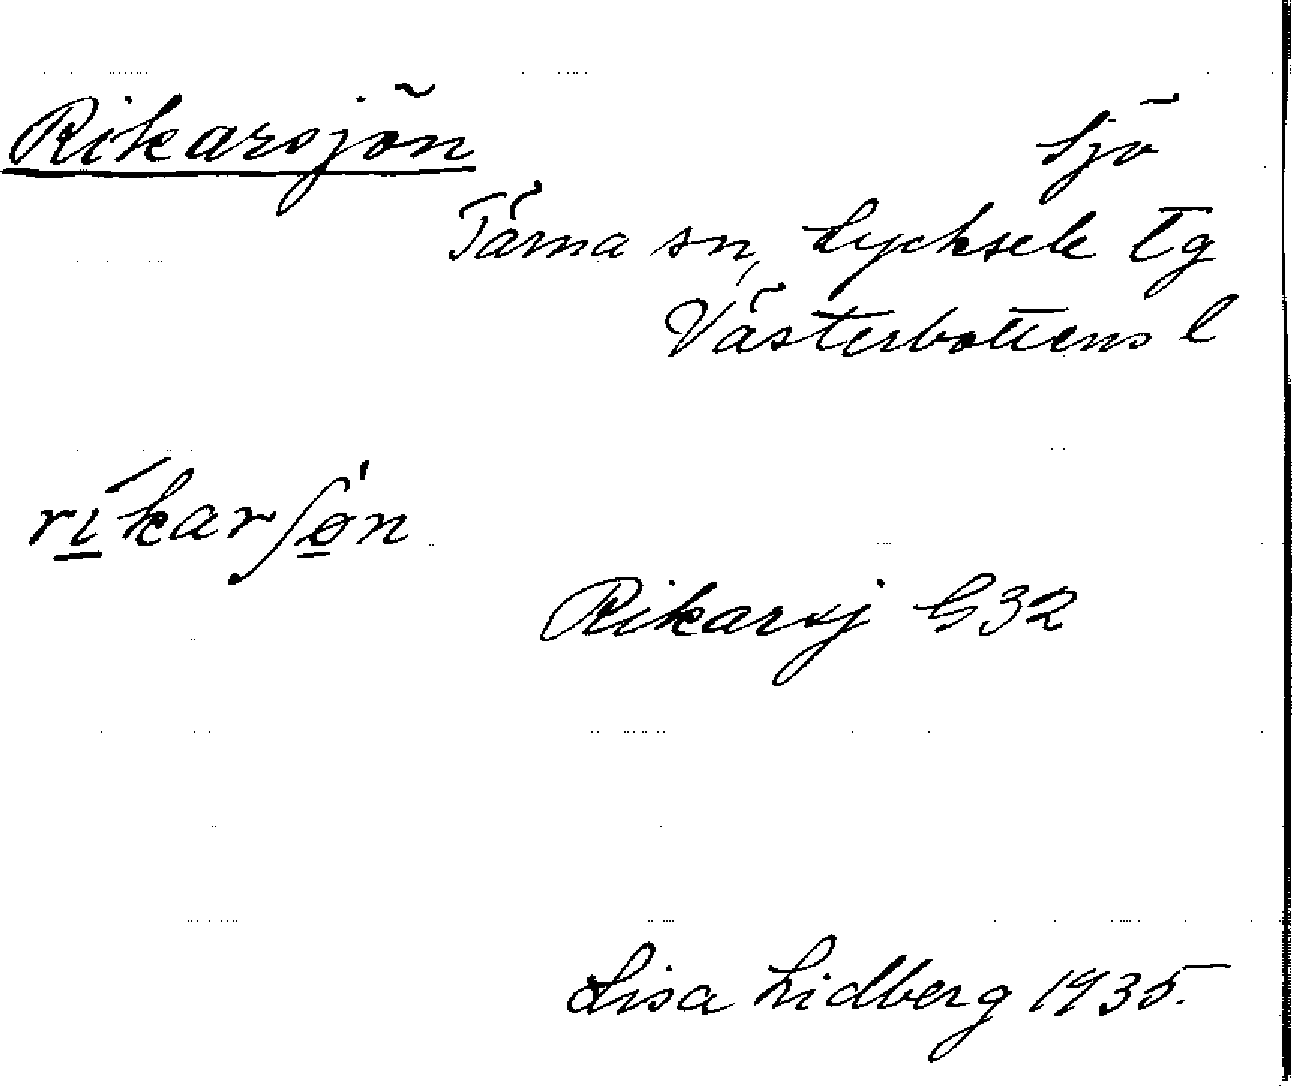 Rikarsjön
Sjö
Tärna sn, Lycksele tg
Västerbottens l
ríkarʃø'n
Rikarsj G32
Lisa Lidberg 1935.